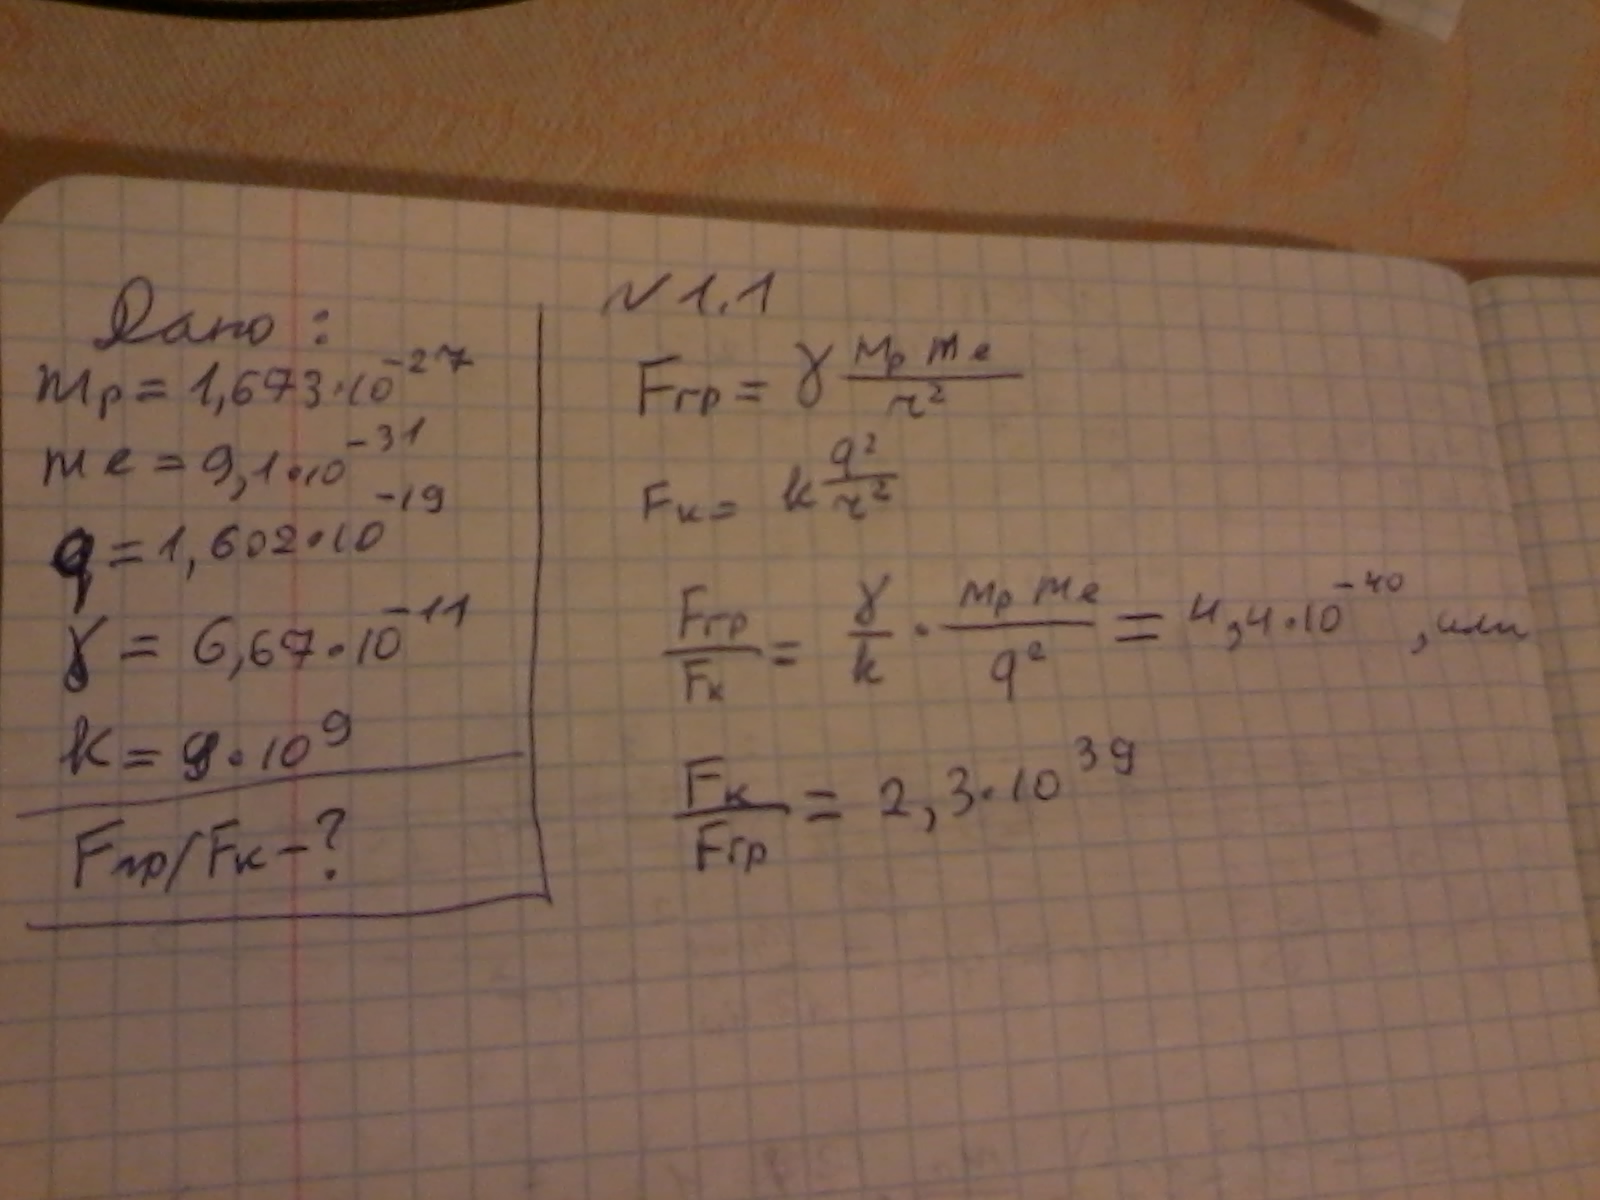 Дано:
mp = 1,673·10^-27
me = 9,1·10^-31
q = 1,602·10^-19
γ = 6,67·10^-11
k = 9·10^9
Fгр/Fк - ?
№1.1
Fгр = γ mp me / r²
Fк = k q² / r²
Fгр / Fк = γ / k · mp me / q² = 4,4·10^-40, или
Fк / Fгр = 2,3·10^39